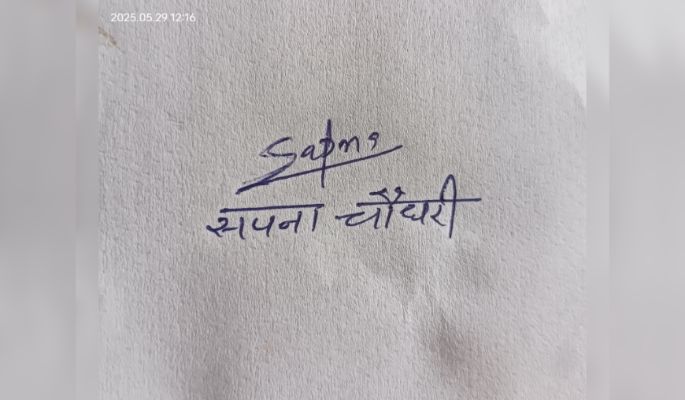 2025.05.29 12:16
Sapna
सपना चौधरी